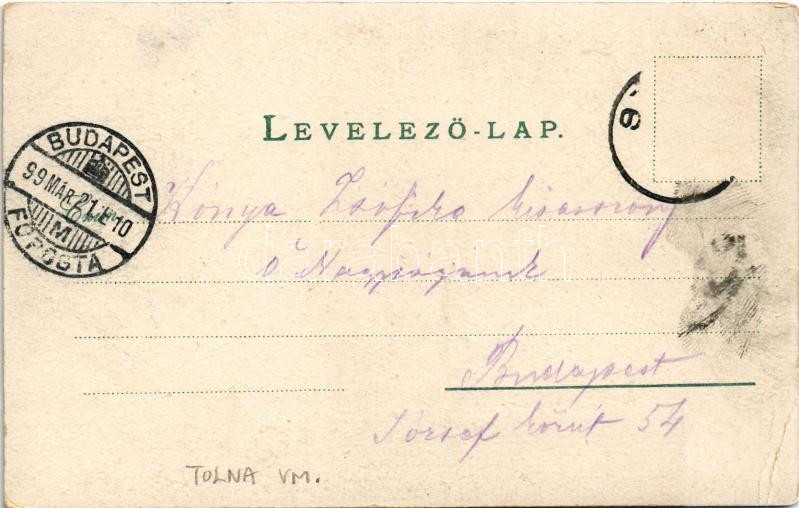 LEVELEZŐ-LAP.
BUDAPEST
99 MÁR 21 É 10
M
FŐPOSTA
9
Kónya Zsófika kisasszony
Ő Nagyságának
Budapest
József körút 54
TOLNA VM.
darabanth